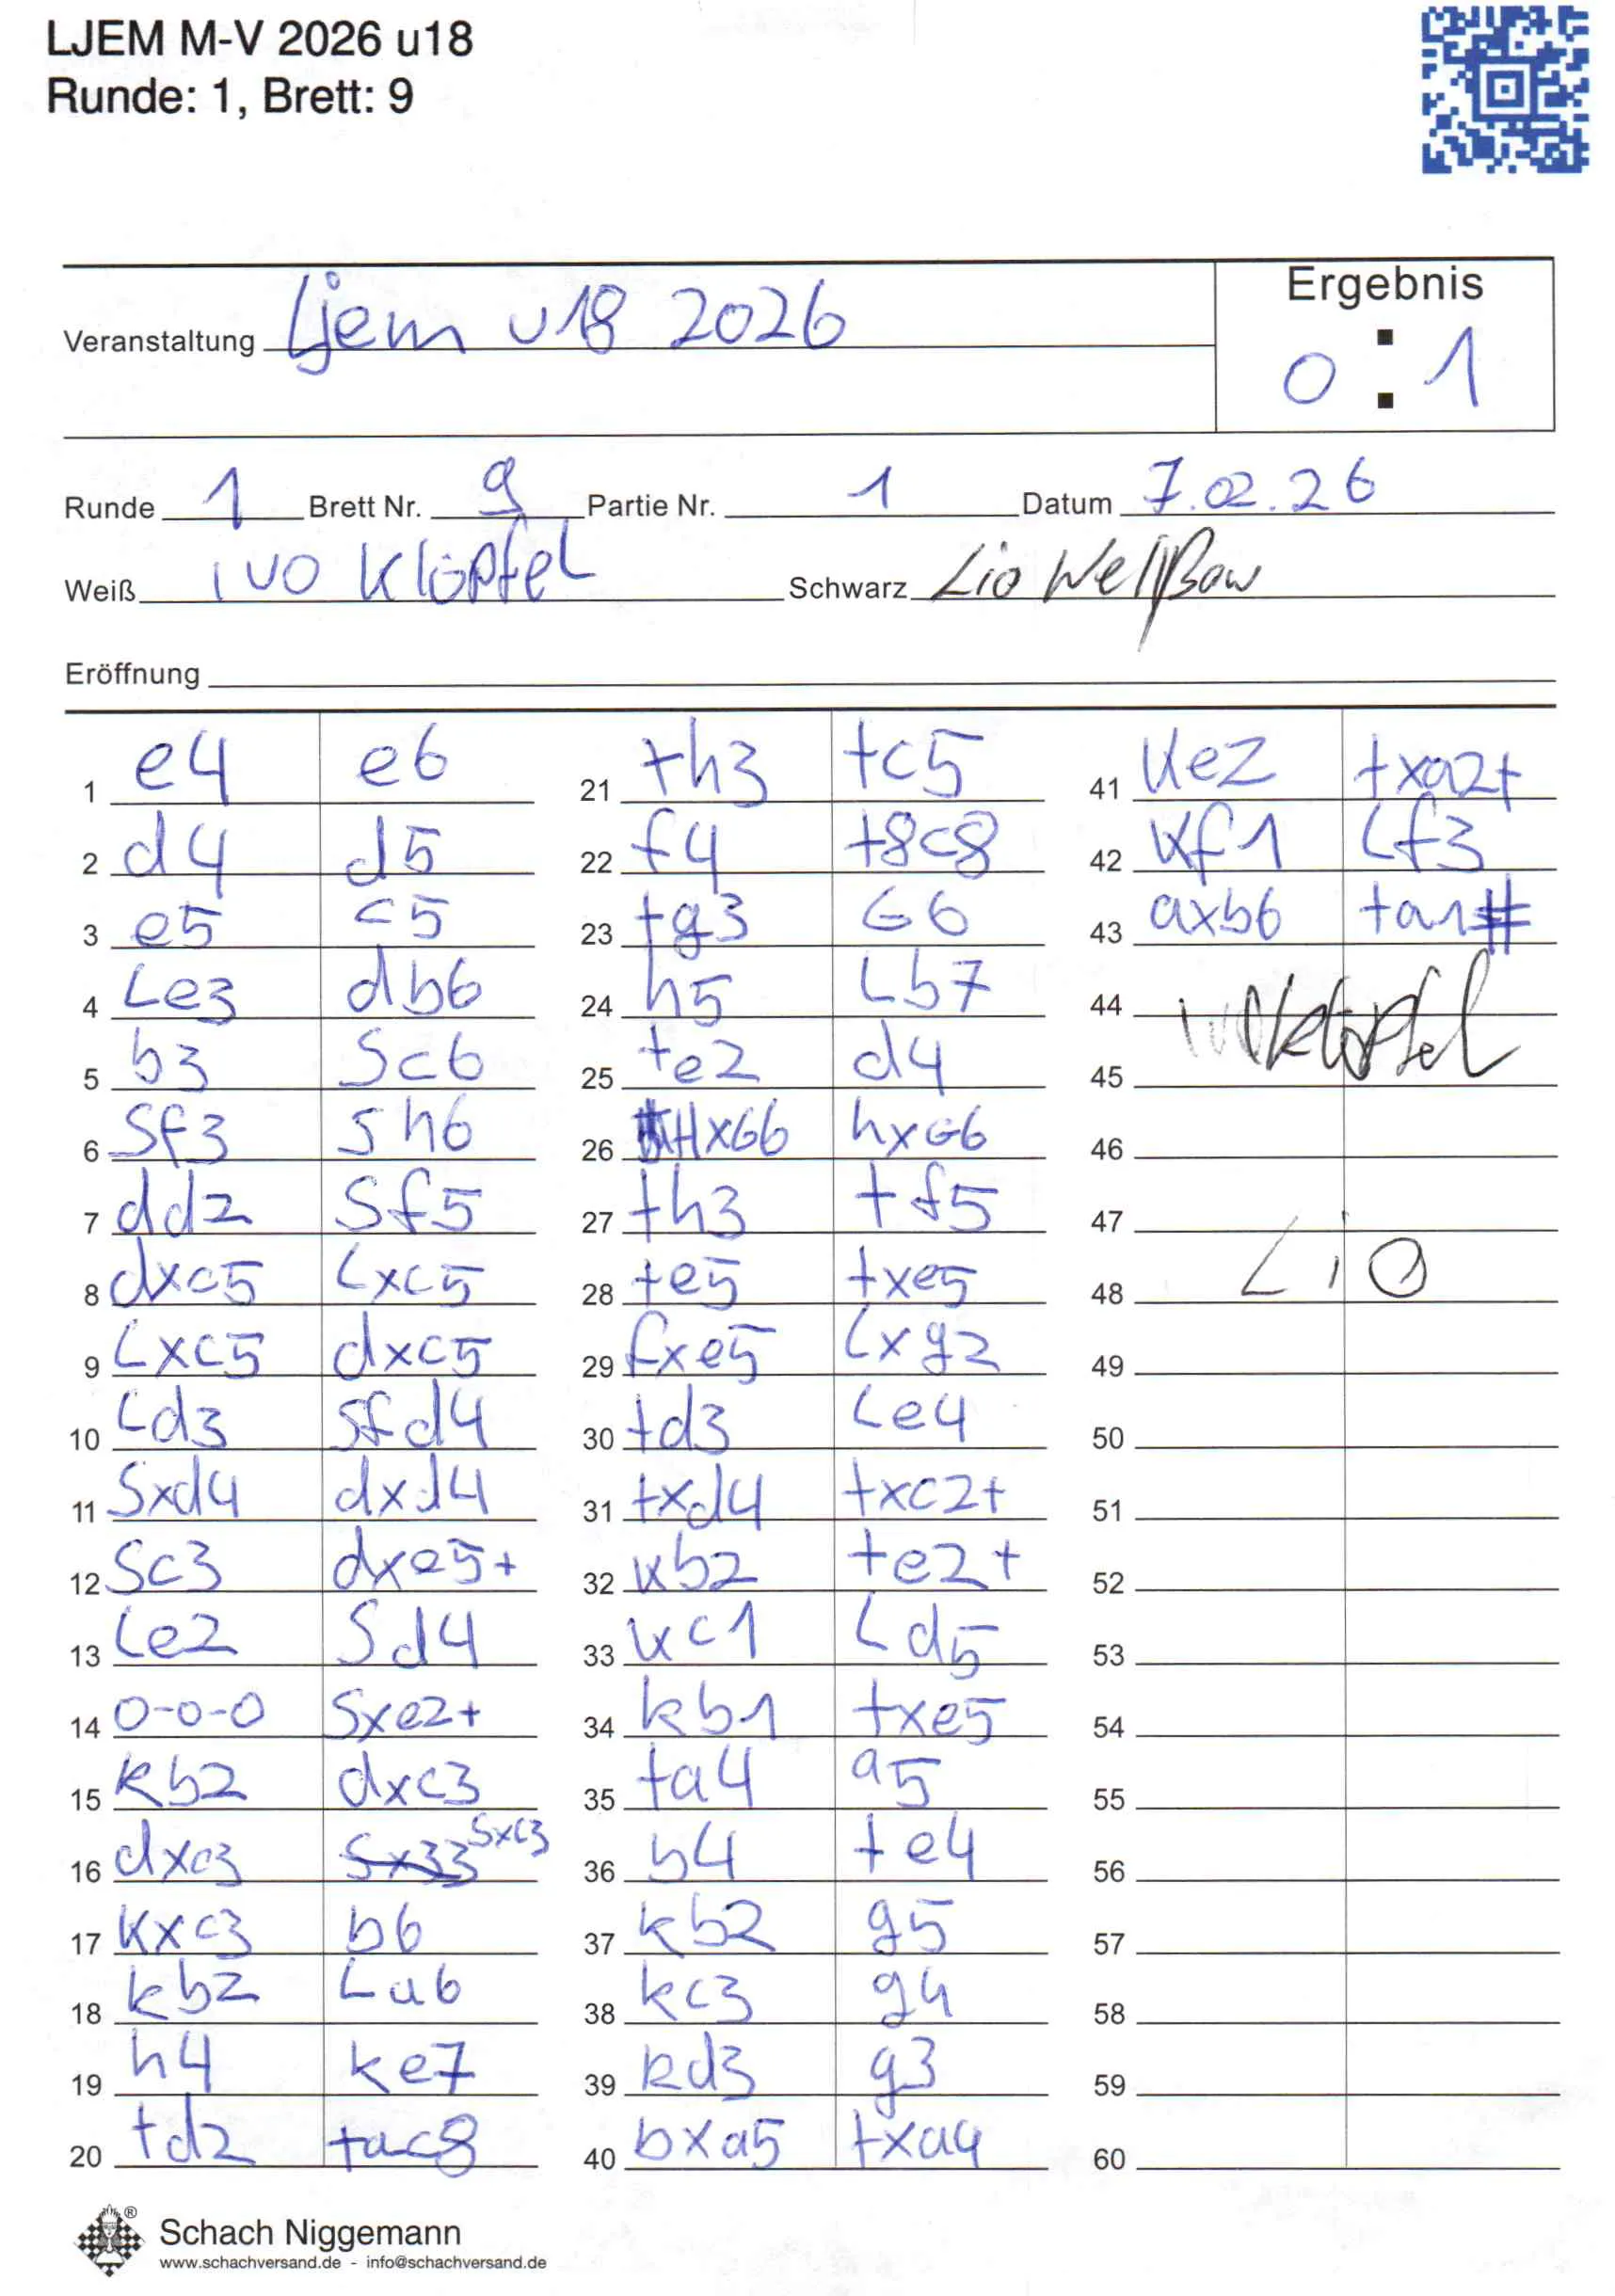 LJEM M-V 2026 u18
Runde: 1, Brett: 9
Ergebnis
Veranstaltung Ljem u18 2026
0 : 1
Runde 1 Brett Nr. 9 Partie Nr. 1 Datum 7.02.26
Weiß Ivo Klöpfel Schwarz Lio Wellßow
Eröffnung
1 e4 e6
2 d4 d5
3 e5 c5
4 Le3 db6
5 b3 Sc6
6 Sf3 Sh6
7 dd2 Sf5
8 dxc5 Lxc5
9 Lxc5 dxc5
10 Ld3 Sfd4
11 Sxd4 dxd4
12 Sc3 dxe5+
13 Le2 Sd4
14 0-0-0 Sxe2+
15 kb2 dxc3
16 dxc3 Sxc3
17 Kxc3 b6
18 kb2 La6
19 h4 ke7
20 td2 tac8
21 th3 tc5
22 f4 t8c8
23 tg3 G6
24 h5 Lb7
25 te2 d4
26 HxG6 hxG6
27 th3 tf5
28 te5 txe5
29 fxe5 Lxg2
30 td3 Le4
31 txd4 txc2+
32 kb2 te2+
33 kc1 Ld5
34 kb1 txe5
35 ta4 a5
36 b4 te4
37 kb2 g5
38 kc3 g4
39 kd3 g3
40 bxa5 txa4
41 Ke2 txa2+
42 Kf1 Lf3
43 axb6 ta1#
44
45
Ivo Klöpfel
46
47
48 Lio
49
50
51
52
53
54
55
56
57
58
59
60
® Schach Niggemann
www.schachversand.de - info@schachversand.de